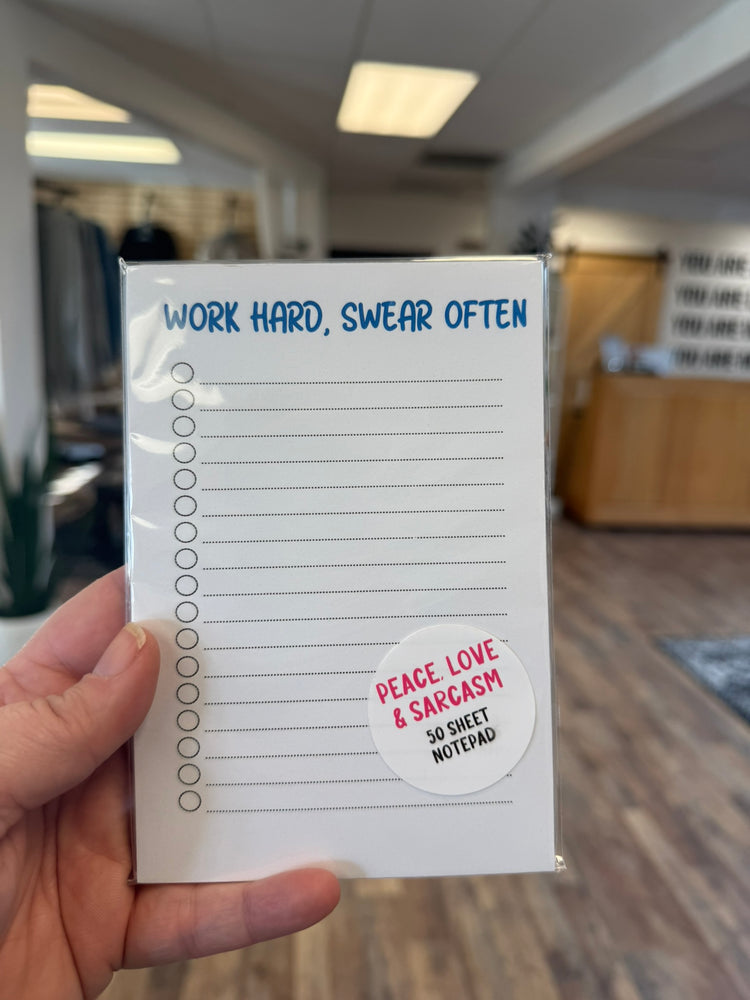 WORK HARD, SWEAR OFTEN
PEACE, LOVE
& SARCASM
50 SHEET
NOTEPAD
YOU ARE
YOU ARE
YOU ARE
YOU ARE